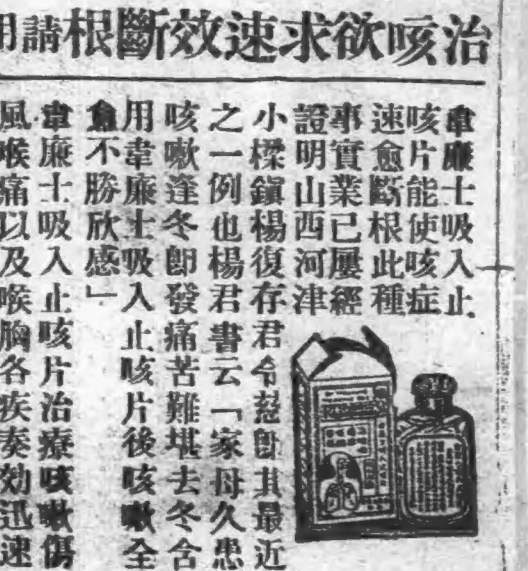 治咳欲求速效斷根請用
韋廉士吸入止
咳片能使咳症
速愈斷根此種
事實業已屢經
證明山西河津
小樑鎭楊復存君令慈卽其最近
之一例也楊君書云「家母久患
咳嗽逢冬卽發痛苦難堪去冬含
用韋廉士吸入止咳片後咳嗽全
愈不勝欣感」
韋廉士吸入止咳片治療咳嗽傷
風喉痛以及喉胸各疾奏効迅速